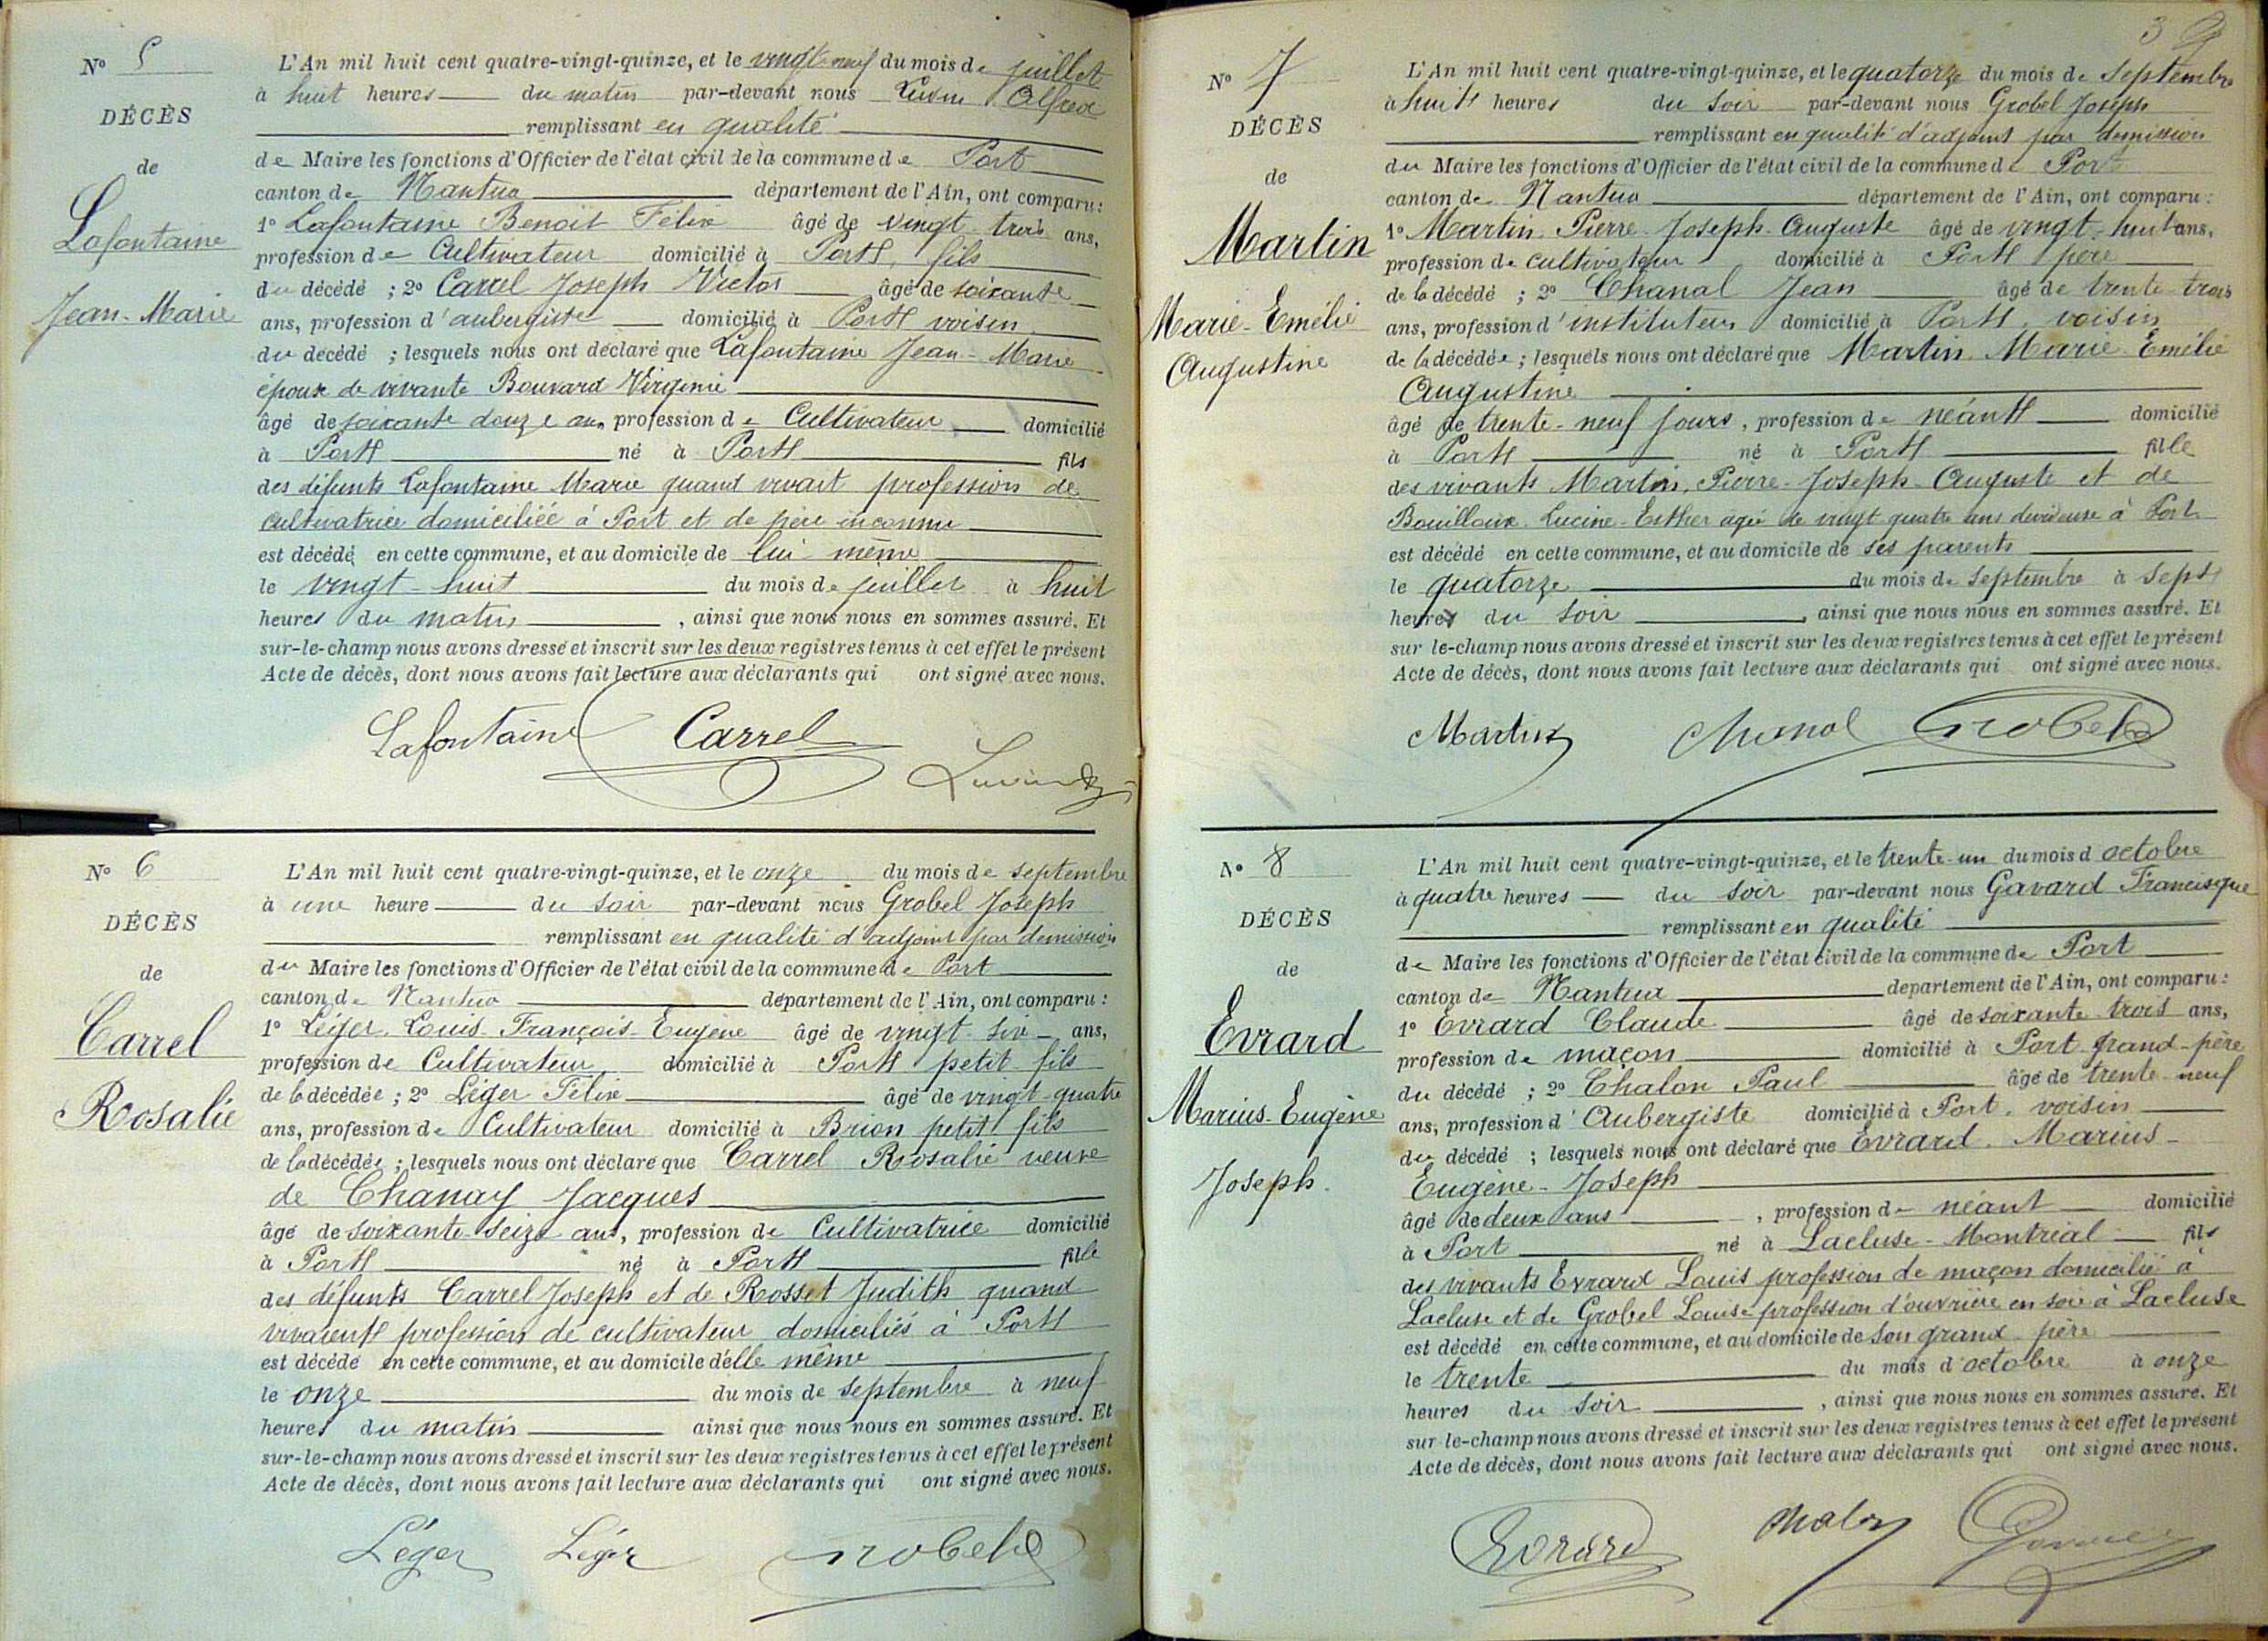 N° 5
DÉCÈS
de
Lafontaine
Jean-Marie
L'An mil huit cent quatre-vingt-quinze, et le vingt-neuf du mois de juillet
à huit heures du matin par-devant nous Alfred
remplissant en qualité
de Maire les fonctions d'Officier de l'état civil de la commune de Port
canton de Nantua département de l'Ain, ont comparu :
1° Lafontaine Benoit Félix âgé de vingt trois ans,
profession de Cultivateur domicilié à Port, fils
du décédé ; 2° Carrel Joseph Victor âgé de soixante
ans, profession d'aubergiste domicilié à Port voisin
du décédé ; lesquels nous ont déclaré que Lafontaine Jean-Marie
époux de vivante Bouvard Virginie
âgé de soixante douze ans profession de Cultivateur domicilié
à Port né à Port fils
des défunts Lafontaine Marie quand vivait profession de
cultivatrice domiciliée à Port et de père inconnu
est décédé en cette commune, et au domicile de lui même
le vingt-huit du mois de juillet à huit
heures du matin, ainsi que nous nous en sommes assuré. Et
sur-le-champ nous avons dressé et inscrit sur les deux registres tenus à cet effet le présent
Acte de décès, dont nous avons fait lecture aux déclarants qui ont signé avec nous.
Lafontaine Carrel
N° 6
DÉCÈS
de
Carrel
Rosalie
L'An mil huit cent quatre-vingt-quinze, et le onze du mois de septembre
à une heure du soir par-devant nous Grobel Joseph
remplissant en qualité d'adjoint par demission
du Maire les fonctions d'Officier de l'état civil de la commune de Port
canton de Nantua département de l'Ain, ont comparu :
1° Léger Louis François-Eugène âgé de vingt six ans,
profession de Cultivateur domicilié à Port petit fils
de la décédée ; 2° Léger Félix âgé de vingt-quatre
ans, profession de Cultivateur domicilié à Brion petit fils
de la décédée ; lesquels nous ont déclaré que Carrel Rosalie veuve
de Chanay Jacques
âgé de soixante-seize ans, profession de Cultivatrice domicilié
à Port né à Port fille
des défunts Carrel Joseph et de Rosset Judith quand
vivaient profession de cultivateur domiciliés à Port
est décédé en cette commune, et au domicile d'elle même
le onze du mois de septembre à neuf
heures du matin ainsi que nous nous en sommes assuré. Et
sur-le-champ nous avons dressé et inscrit sur les deux registres tenus à cet effet le présent
Acte de décès, dont nous avons fait lecture aux déclarants qui ont signé avec nous.
Léger Léger Grobel
3
N° 7
DÉCÈS
de
Martin
Marie-Emélie
Augustine
L'An mil huit cent quatre-vingt-quinze, et le quatorze du mois de Septembre
à huit heures du soir par-devant nous Grobel Joseph
remplissant en qualité d'adjoint par demission
du Maire les fonctions d'Officier de l'état civil de la commune de Port
canton de Nantua département de l'Ain, ont comparu :
1° Martin Pierre-Joseph-Auguste âgé de vingt-huit ans,
profession de cultivateur domicilié à Port père
de la décédé ; 2° Chanal Jean âgé de trente-trois
ans, profession d'instituteur domicilié à Port, voisin
de la décédée ; lesquels nous ont déclaré que Martin Marie Emélie
Augustine
âgé de trente-neuf jours, profession de néant domicilié
à Port né à Port fille
des vivants Martin, Pierre-Joseph-Auguste et de
Bouilloux Lucine-Esther agée de vingt quatre ans devideuse à Port
est décédé en cette commune, et au domicile de ses parents
le quatorze du mois de septembre à sept
heures du soir, ainsi que nous nous en sommes assuré. Et
sur le-champ nous avons dressé et inscrit sur les deux registres tenus à cet effet le présent
Acte de décès, dont nous avons fait lecture aux déclarants qui ont signé avec nous.
Martin Chanal Grobel
N° 8
DÉCÈS
de
Evrard
Marius-Eugène
Joseph.
L'An mil huit cent quatre-vingt-quinze, et le trente-un du mois d octobre
à quatre heures du soir par-devant nous Gavard Francisque
remplissant en qualité
de Maire les fonctions d'Officier de l'état civil de la commune de Port
canton de Nantua departement de l'Ain, ont comparu :
1° Evrard Claude âgé de soixante trois ans,
profession de maçon domicilié à Port grand-père
du décédé ; 2° Chalon Paul âgé de trente-neuf
ans, profession d'Aubergiste domicilié à Port. voisin
du décédé ; lesquels nous ont déclaré que Evrard. Marius-
Eugène-Joseph
âgé de deux ans, profession de néant domicilié
à Port né à Lacluse-Montréal fils
des vivants Evrard Louis profession de maçon domicilié à
Lacluse et de Grobel Louise profession d'ouvrière en soie à Lacluse
est décédé en cette commune, et au domicile de son grand-père
le trente du mois d'octobre à onze
heures du soir, ainsi que nous nous en sommes assuré. Et
sur le-champ nous avons dressé et inscrit sur les deux registres tenus à cet effet le présent
Acte de décès, dont nous avons fait lecture aux déclarants qui ont signé avec nous.
Evrard Chalon